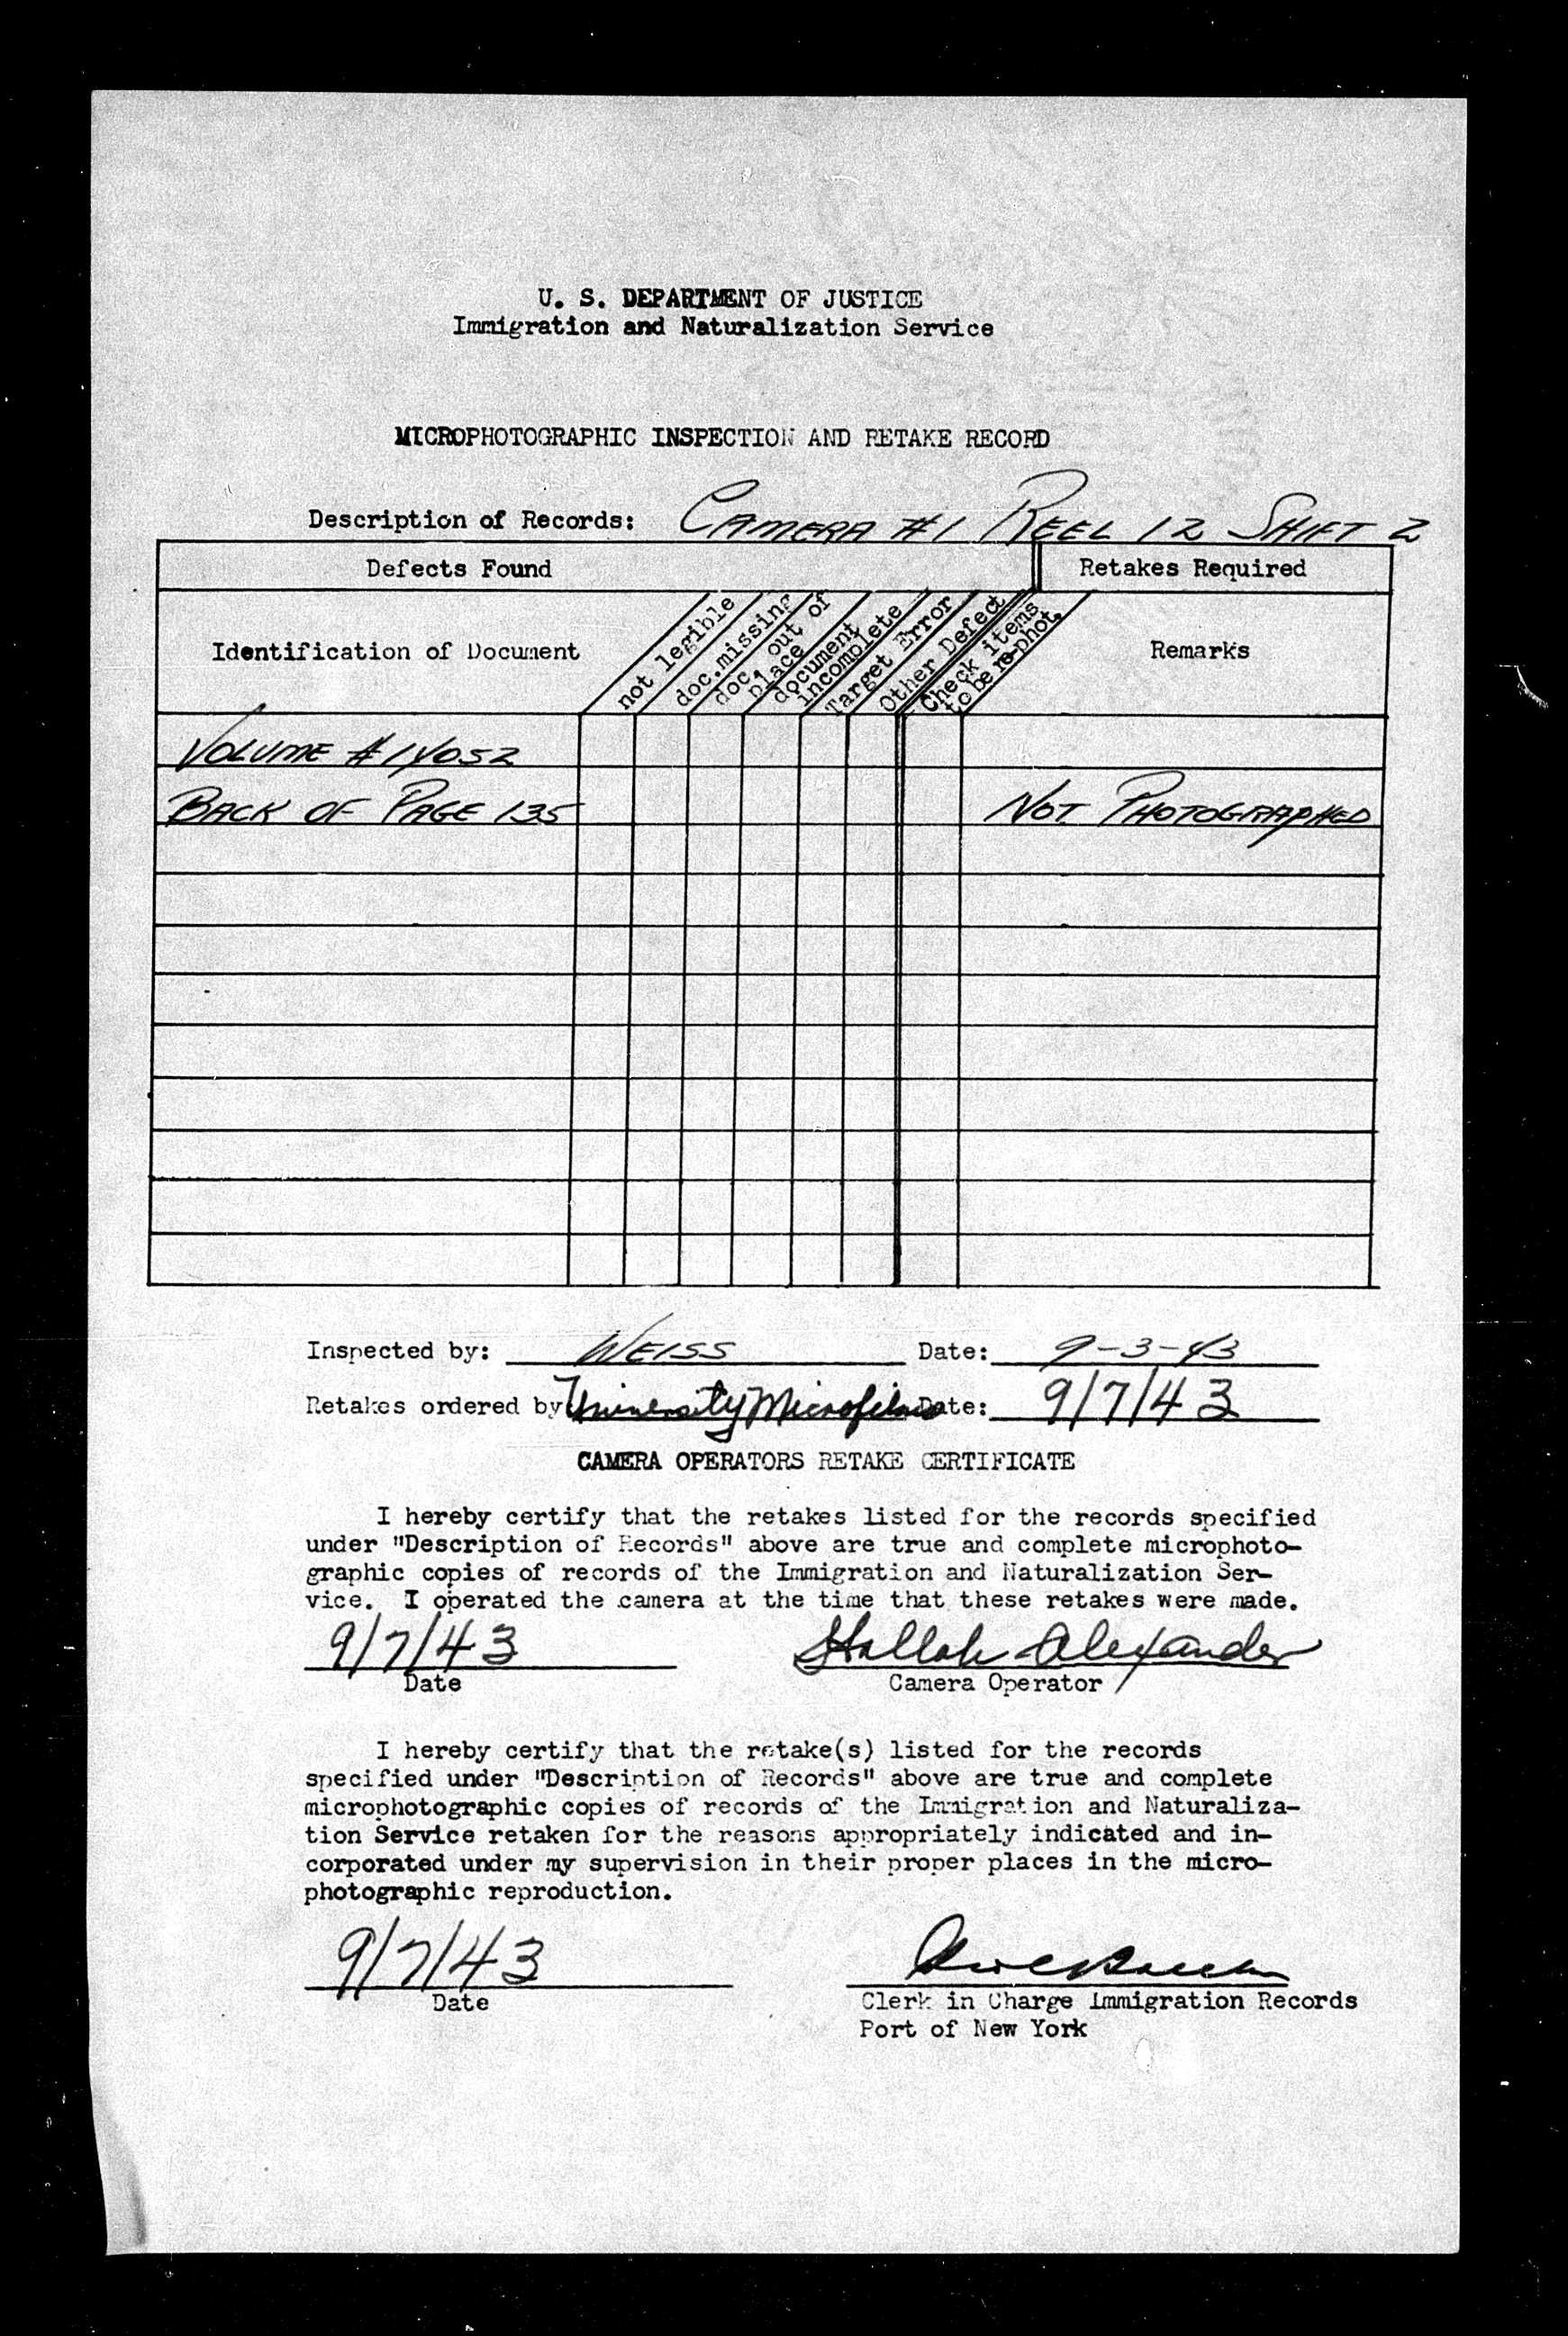 U. S. DEPARTMENT OF JUSTICE
Immigration and Naturalization Service
MICROPHOTOGRAPHIC INSPECTION AND RETAKE RECORD
Description of Records: CAMERA #1 REEL 12 SHIFT 2
Defects Found
Retakes Required
Identification of Document
not legible
doc. missing
doc. out of
place
document
incomplete
Target Error
Other Defect
Check items
to be re-phot.
Remarks
VOLUME #14052
BACK OF PAGE 135 NOT PHOTOGRAPHED
Inspected by: WEISS Date: 9-3-43
Retakes ordered by University Microfilms Date: 9/7/43
CAMERA OPERATORS RETAKE CERTIFICATE
I hereby certify that the retakes listed for the records specified
under "Description of Records" above are true and complete microphoto-
graphic copies of records of the Immigration and Naturalization Ser-
vice. I operated the camera at the time that these retakes were made.
9/7/43 Alexander
Date Camera Operator
I hereby certify that the retake(s) listed for the records
specified under "Description of Records" above are true and complete
microphotographic copies of records of the Immigration and Naturaliza-
tion Service retaken for the reasons appropriately indicated and in-
corporated under my supervision in their proper places in the micro-
photographic reproduction.
9/7/43
Date
Clerk in Charge Immigration Records
Port of New York